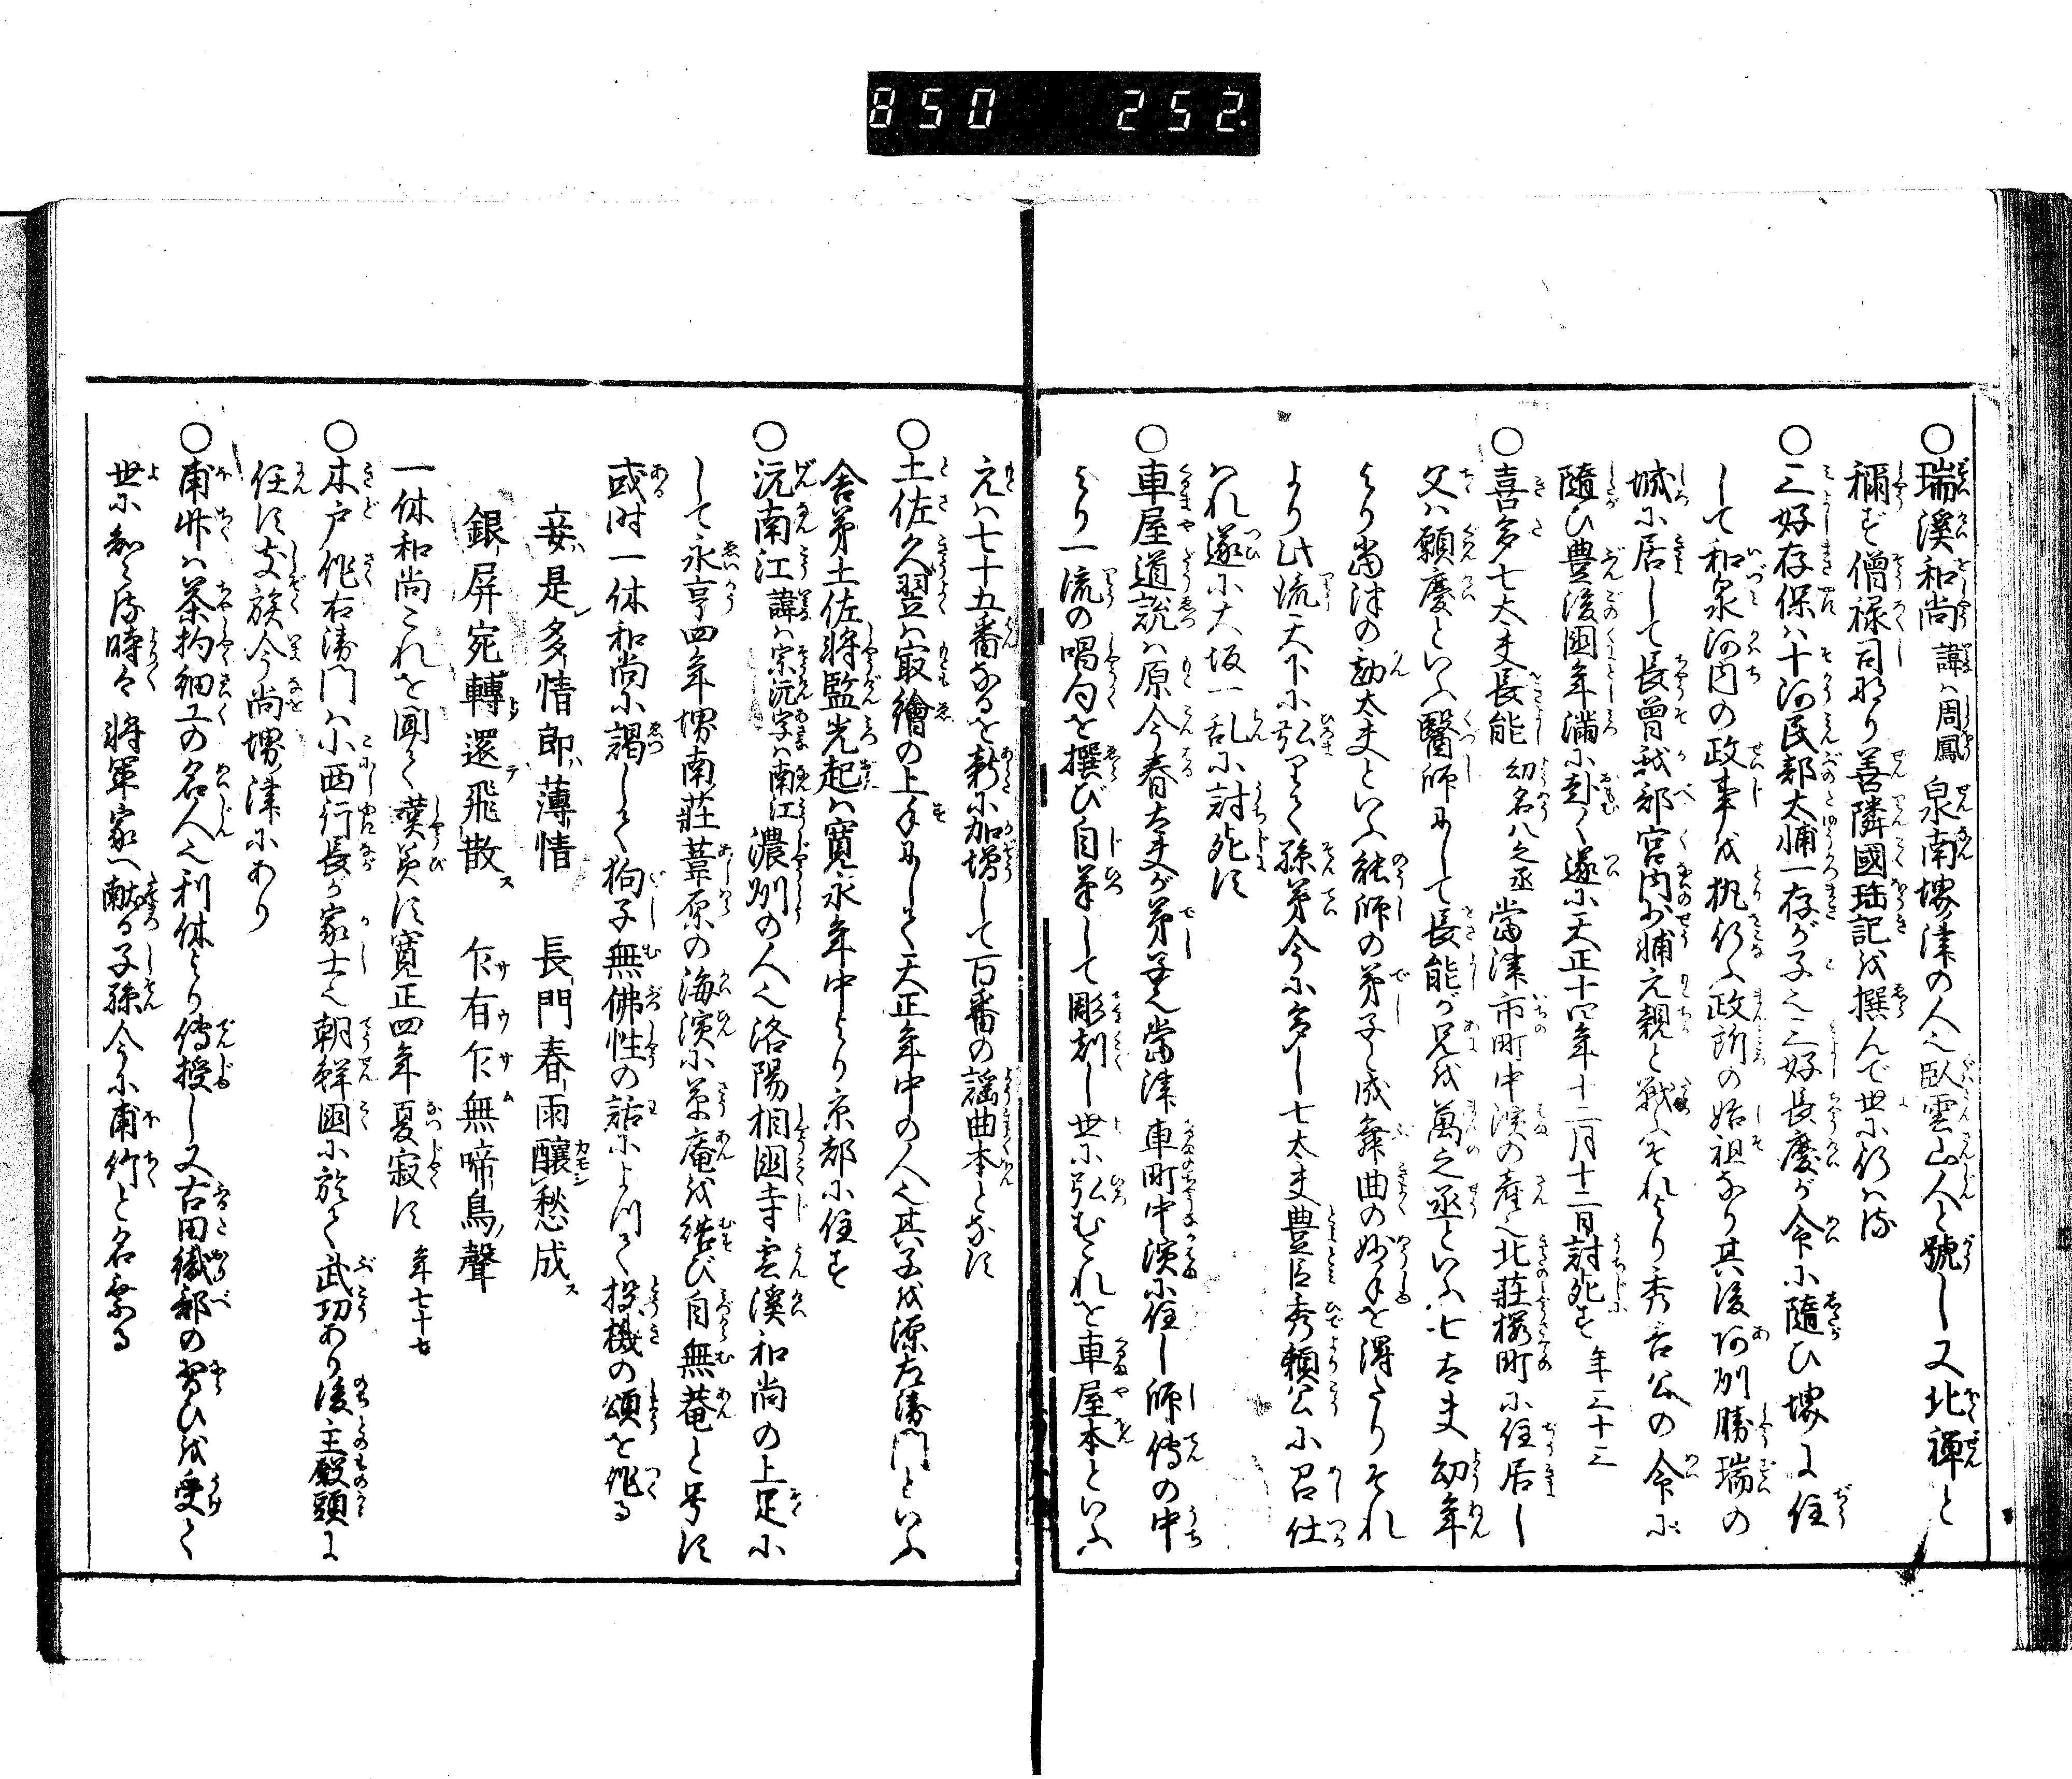 850 252
〇瑞溪和尚 諱ハ周鳳 泉南堺津の人也臥雲山人と號し又北禪と
稱ず僧禄司なり善隣國宝記を撰んで世に行はる
〇三好存保ハ十河民部太輔一存が子也三好長慶が令に隨ひ堺に住
して和泉河内の政事を執行ふ政所の始祖なり其後阿刕勝瑞の
城に居して長曽我部宮内少輔元親と戦ふそれより秀吉公の令に
隨ひ豊後國年滿に赴く遂に天正十四年十二月十二日討死す 年三十三
〇喜多七太夫長能 幼名八之丞 當津市町中濱の産也北莊櫻町に住居し
父ハ願慶といふ醫師にして長能が兄を萬之丞といふ七太夫幼年
より當津の勅太夫といふ能師の弟子と成舞曲の妙手を得たりそれ
より此流天下に弘りて孫弟今に多し七太夫豊臣秀頼公に召仕
はれ遂に大坂一乱に討死す
〇車屋道説ハ原今春太夫が弟子也當津車町中濱に住し師傳の中
より一流の唱句を撰び自筆して彫刻し世に弘むこれを車屋本といふ
元ハ七十五番なるを新に加増して百番の謡曲本となす
〇土佐久翌ハ㝡繪の上手にして天正年中の人也其子を源左衛門といふ
舎弟土佐將監光起ハ寛永年中より京都に住す
〇沅南江 諱ハ宗沅字ハ南江 濃刕の人也洛陽相國寺雲溪和尚の上足に
して永享四年堺南莊葦原の海濱に草庵を結び自無菴と号す
或时一休和尚に謁して狗子無佛性の話によつて投機の頌を作る
妾ハ是レ多情郎ハ薄情 長門春雨醸カモシ愁成ス
銀屏宛轉トシテ還飛散ス 乍サ有ウ乍サ無ム啼鳥ノ聲
一休和尚これを聞て嘆美す寛正四年夏寂す 年七十七
〇木戸作右衛門ハ小西行長が家士也朝鮮國に於て武功あり後主殿頭に
任ず支族今尚堺津にあり
〇甫竹ハ茶杓細工の名人也利休より傳授し又古田織部の習ひを受て
世に知らる時々將軍家へ献る子孫今に甫竹と名乗る